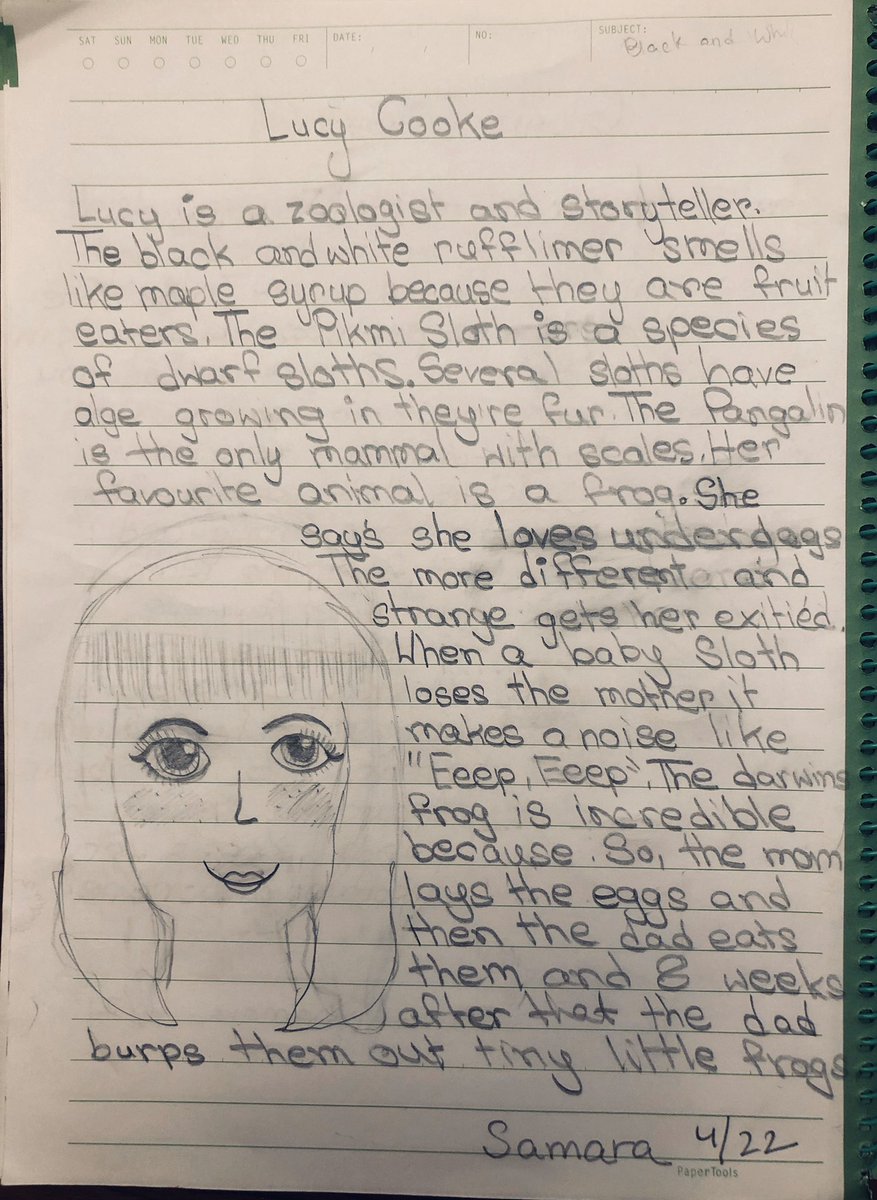 SAT SUN MON TUE WED THU FRI DATE: NO: SUBJECT:
Black and
Lucy Cooke
Lucy is a zoologist and storyteller.
The black and white rufflimer smells
like maple syrup because they are fruit
eaters. The Pikmi Sloth is a species
of dwarf sloths. Several sloths have
alge growing in they're fur. The Pangalin
is the only mammal with scales. Her
favourite animal is a frog. She
says she loves underdogs
The more different and
strange gets her exitied.
When a baby Sloth
loses the mother it
makes a noise like
"Eeep, Eeep". The darwins
frog is incredible
because. So, the mom
lays the eggs and
then the dad eats
them and 8 weeks
after that the dad
burps them out tiny little frogs
Samara 4/22
PaperTools